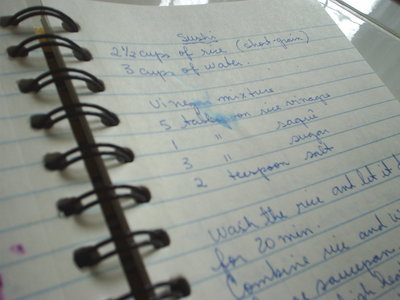 Sushi
2 1/2 cups of rice (short-grain)
3 cups of water.
Vinegar mixture
5 tablespoon rice vinagre
1 " saquê
3 " sugar
2 teaspoon salt
Wash the rice and let it d
for 20 min.
Combine rice and w
saucepan.